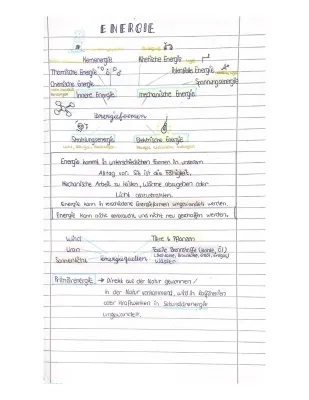 ENERGIE
Kernenergie
Kinetische Energie
Thermische Energie
Potentielle Energie
Chemische Energie
Spannungsenergie
Innere Energie
mechanische Energie
Energieformen
Strahlungsenergie
Elektrische Energie
Energie kommt in unterschiedlichen Formen in unserem
Alltag vor. Sie ist die Fähigkeit,
Mechanische Arbeit zu leisten, Wärme abzugeben oder
Licht auszustrahlen.
Energie kann in verschiedene Energieformen umgewandelt werden.
Energie kann nicht verbraucht und nicht neu geschaffen werden.
Wind
Tiere & Pflanzen
Uran
Fossile Brennstoffe
Sonnenlicht
Energiequellen
Wasser
Primärenergie → Direkt aus der Natur gewonnen /
in der Natur vorkommend, wird in Raffinerien
oder Kraftwerken in Sekundärenergie
umgewandelt.